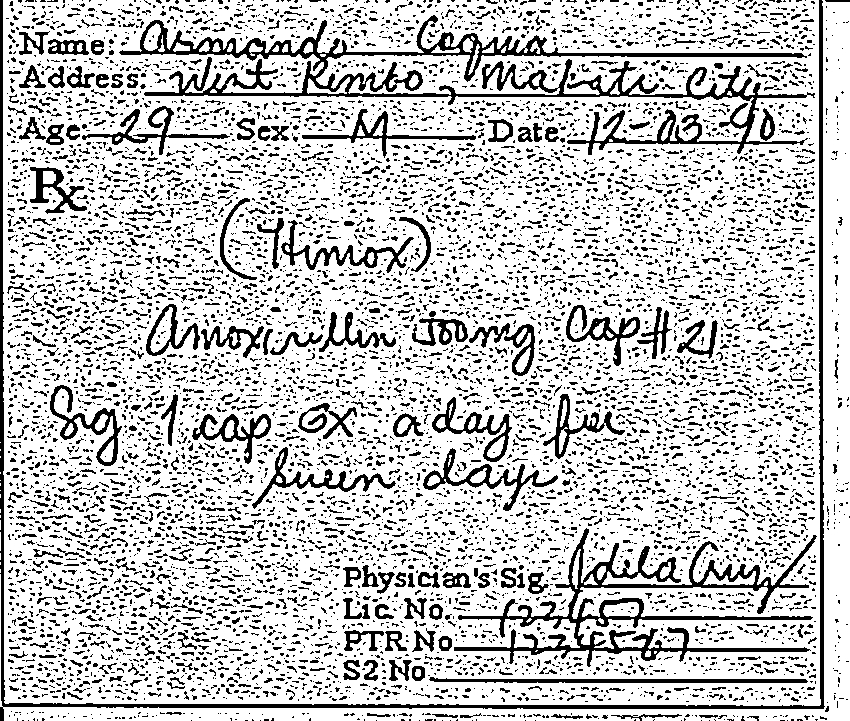 Name: Armando Coquia
Address: West Rembo, Makati City
Age 29 Sex: M Date 12-03-90
Rx
(Himox)
Amoxicillin 500mg Cap #21
Sig. 1 cap 3x a day for
seven days.
Physician's Sig. delaCruz
Lic. No. 123457
PTR No. 1234567
S2 No.